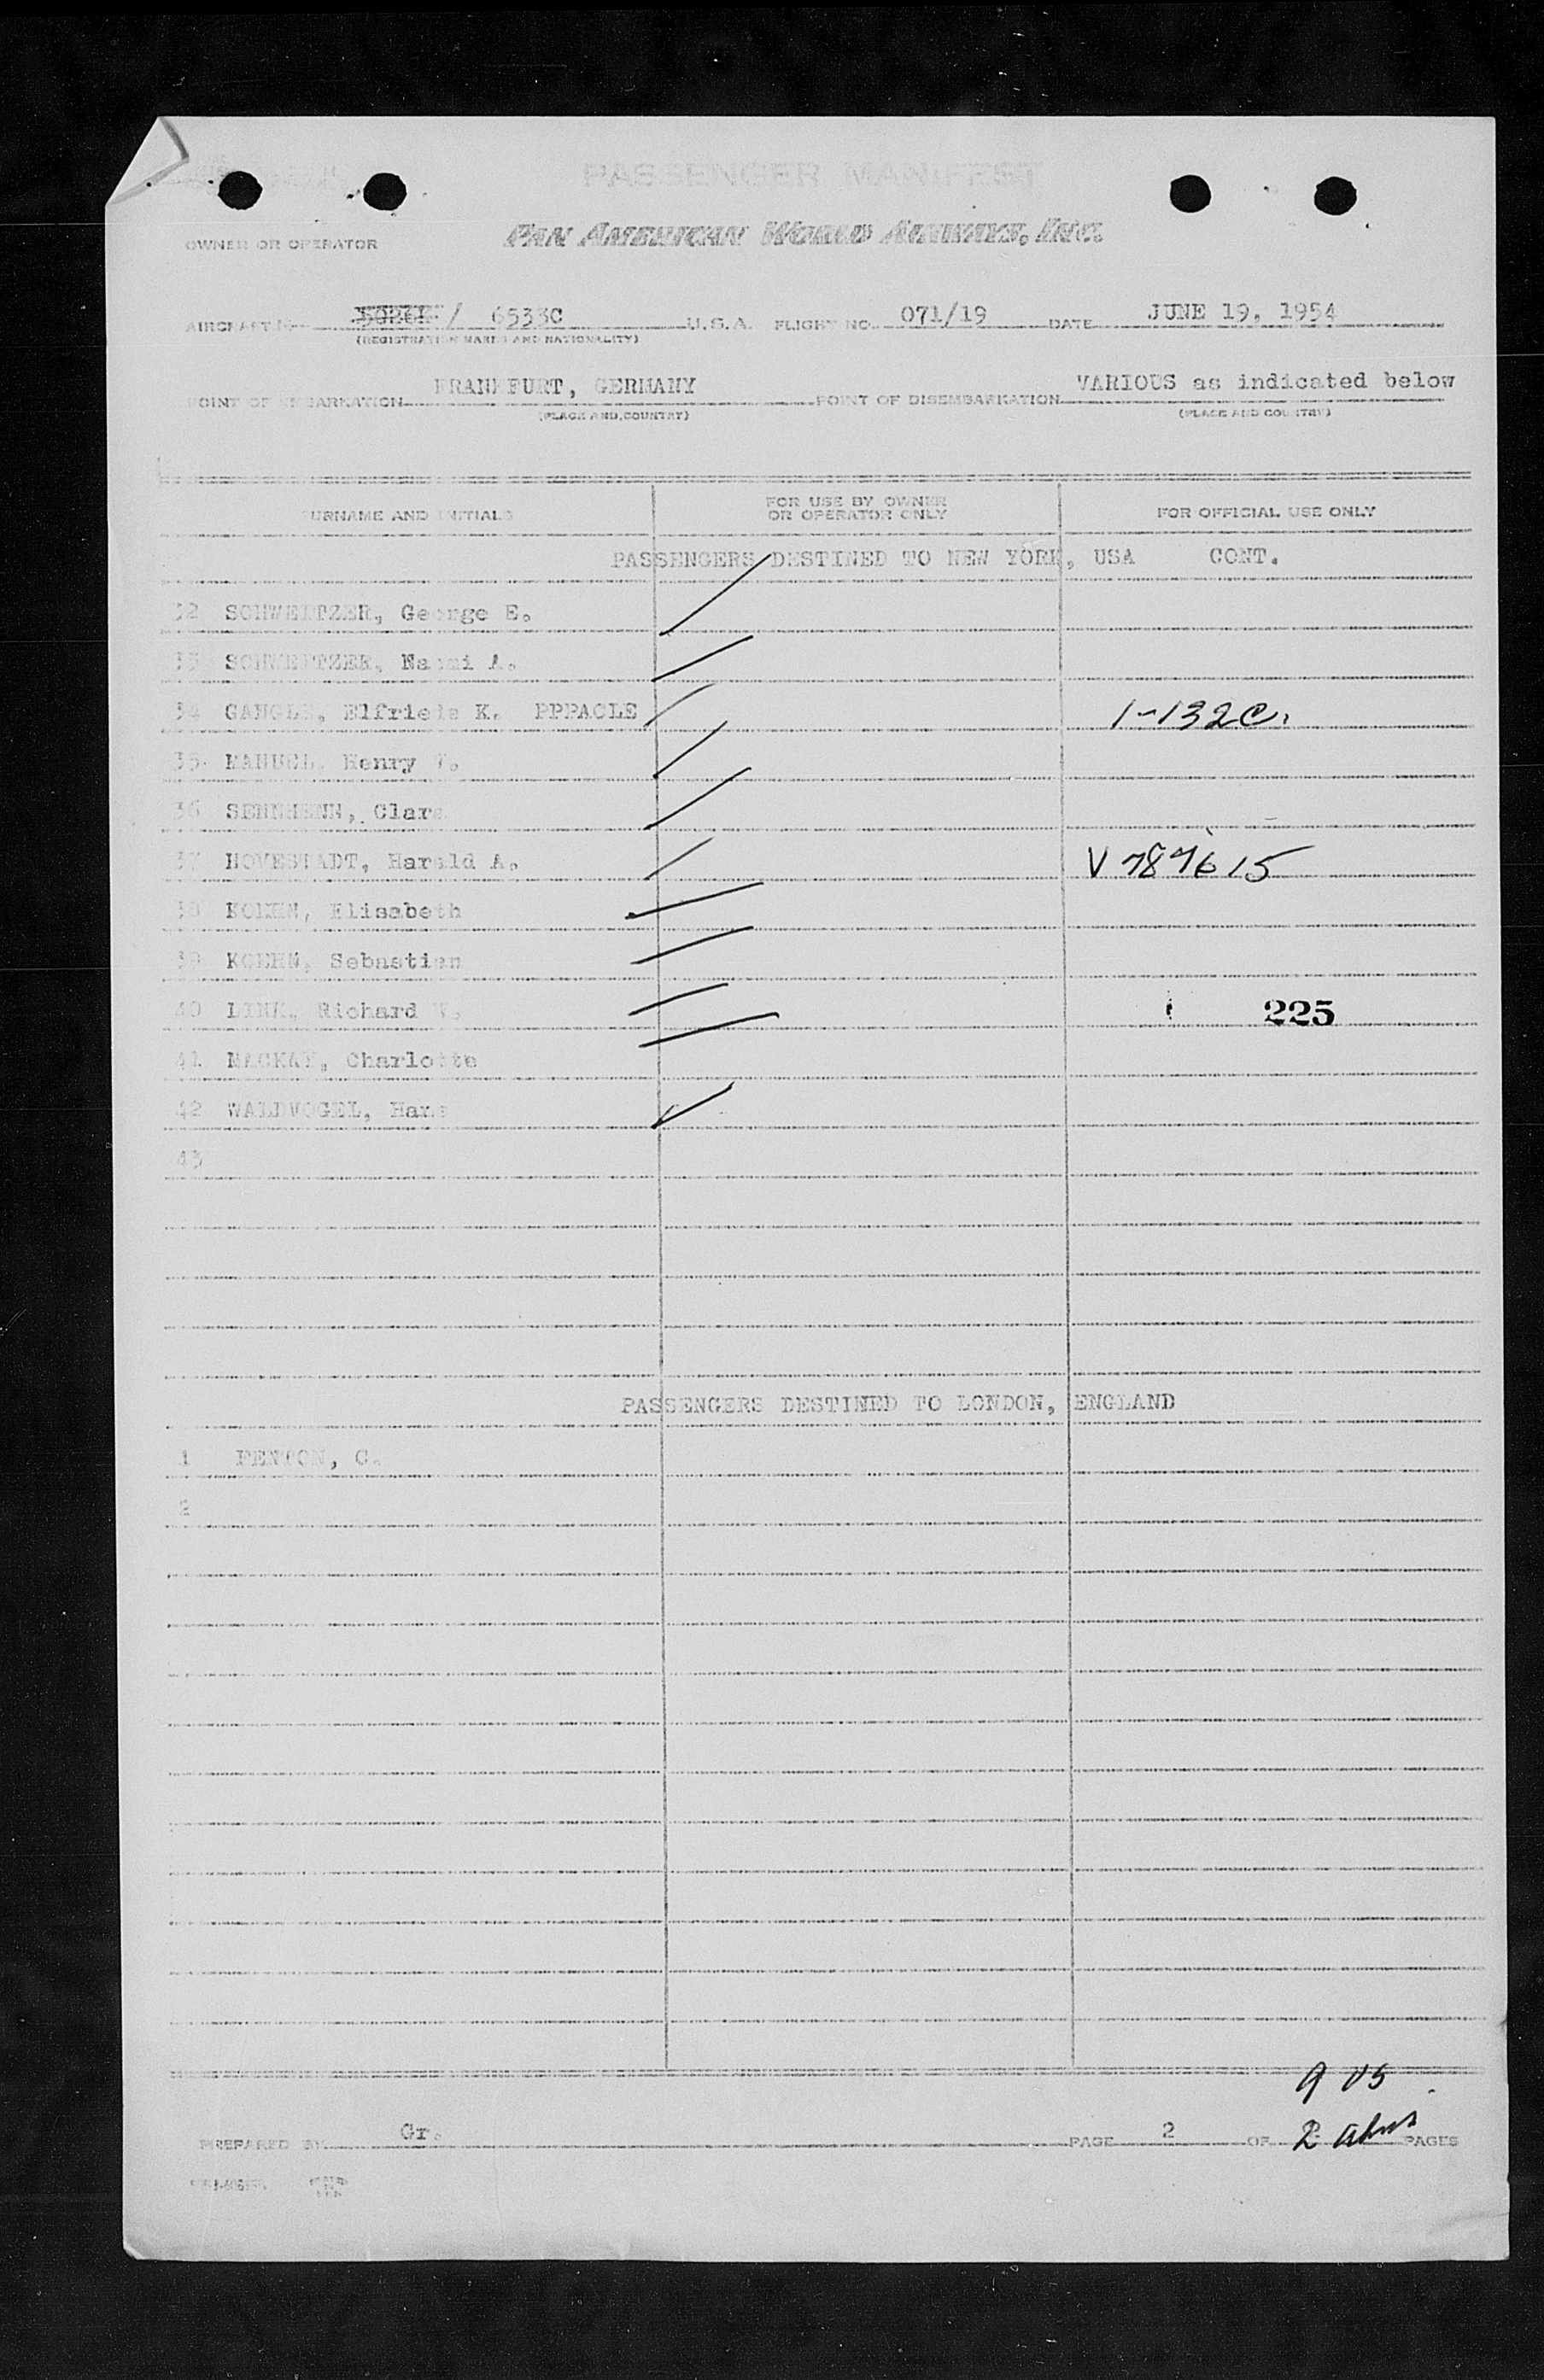 PASSENGER MANIFEST
OWNER OR OPERATOR PAN AMERICAN WORLD AIRWAYS, INC.
AIRCRAFT / 6533C U.S.A. FLIGHT NO. 071/19 DATE JUNE 19, 1954
(REGISTRATION MARKS AND NATIONALITY)
POINT OF EMBARKATION FRANKFURT, GERMANY POINT OF DISEMBARKATION VARIOUS as indicated below
(PLACE AND COUNTRY) (PLACE AND COUNTRY)
SURNAME AND INITIALS FOR USE BY OWNER OR OPERATOR ONLY FOR OFFICIAL USE ONLY
PASSENGERS DESTINED TO NEW YORK, USA CONT.
32 SCHWEITZER, George E.
33 SCHWEITZER, Naomi A.
34 Elfriede K. PPPACLE 1-132C.
35 MANUEL, Henry
36 Clara
37 HOVESTADT, Harald A. V787615
38 KOEHN, Elisabeth
39 KOEHN, Sebastian
40 LINK, Richard W. 225
41 MACKAY, Charlotte
42 WALDVOGEL, Hans
43
PASSENGERS DESTINED TO LONDON, ENGLAND
1 FENTON, C.
2
9 US
PREPARED BY Gr. PAGE 2 OF 2 PAGES